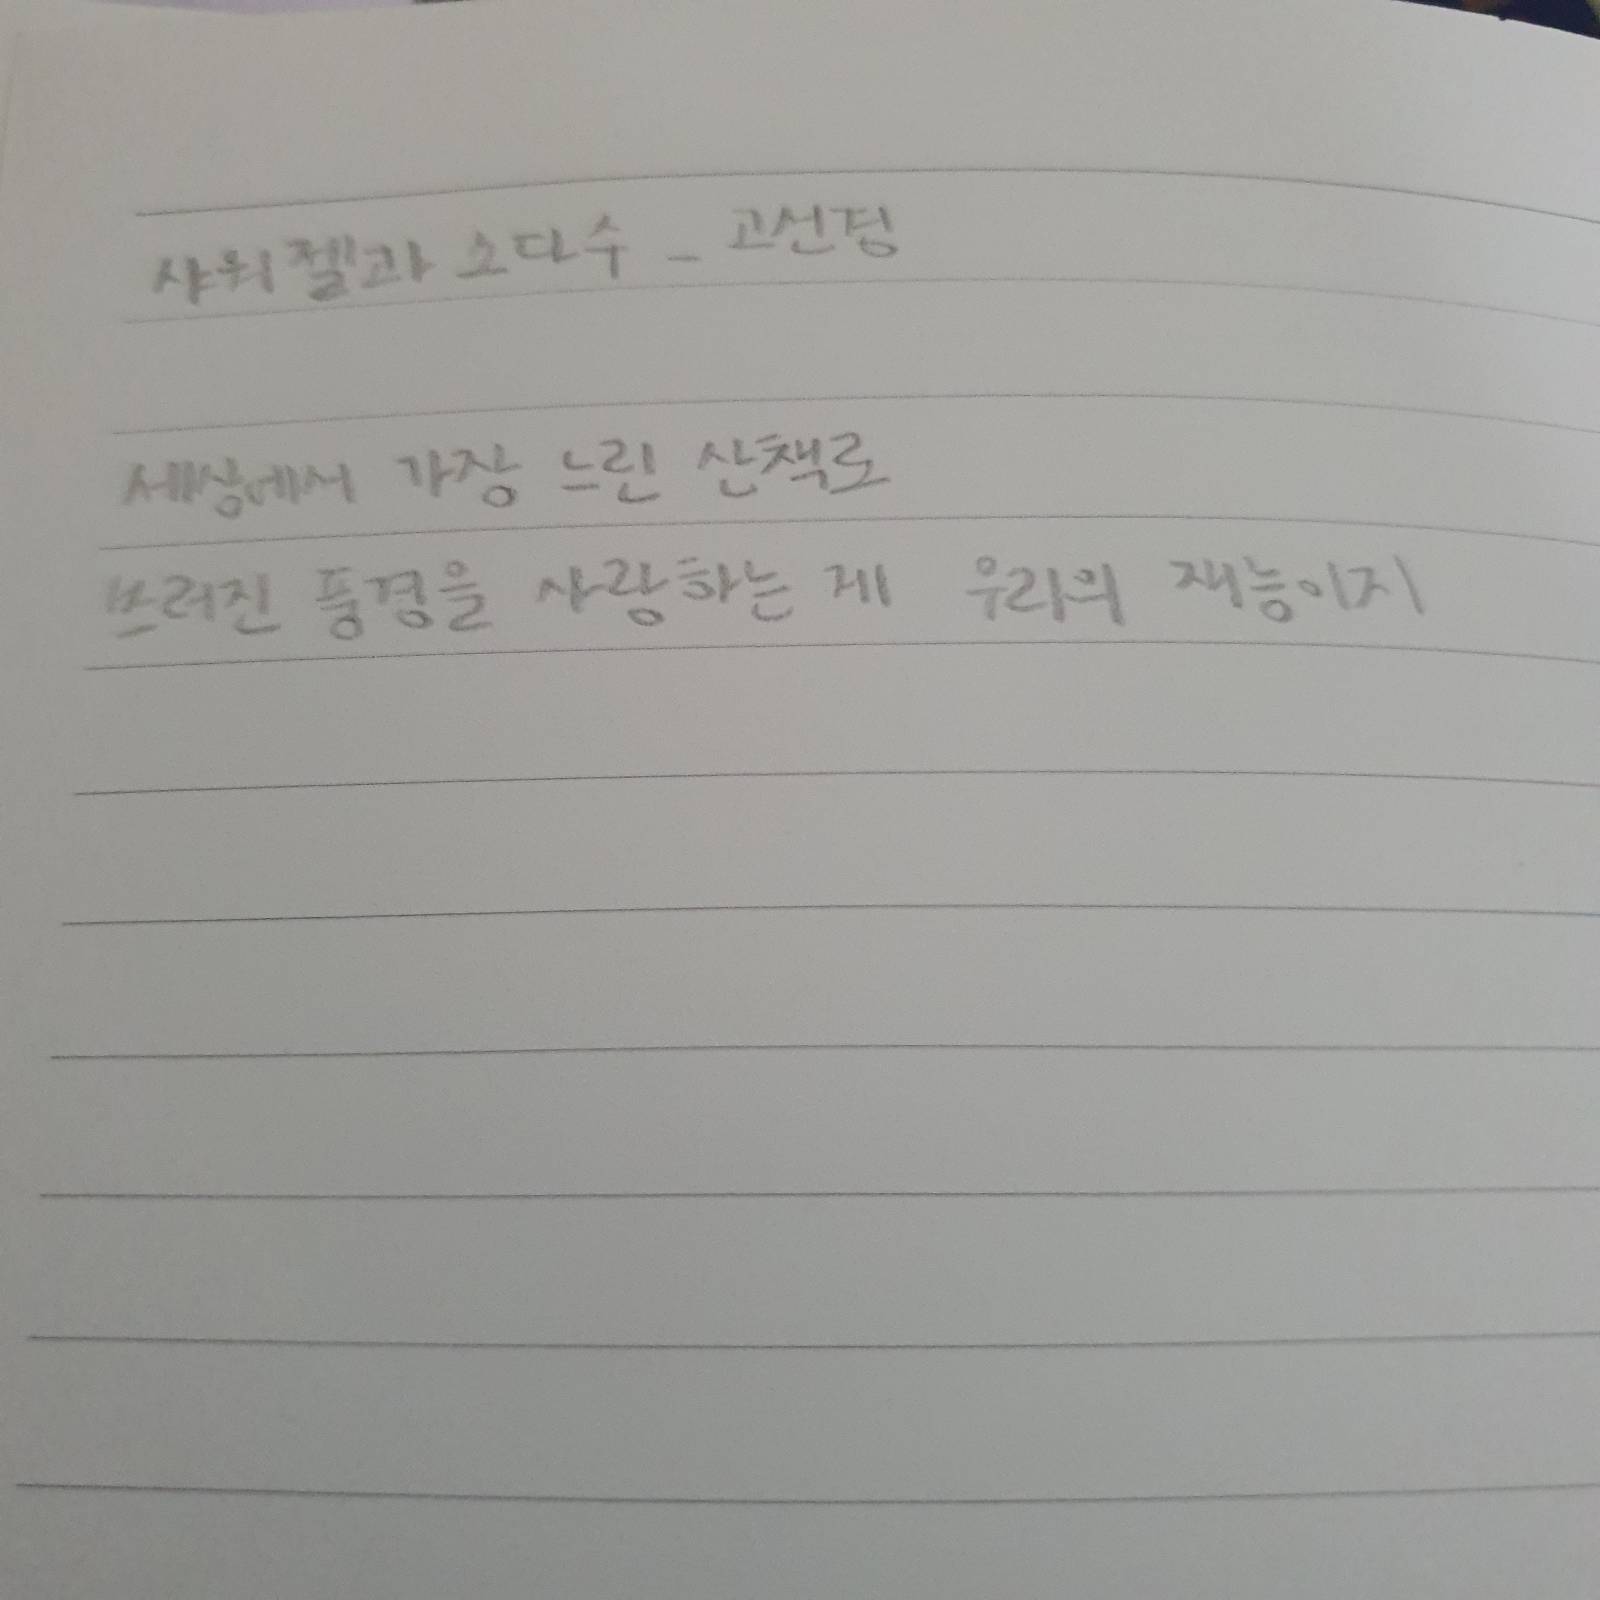 샤워젤과 소다수 - 고선경
세상에서 가장 느린 산책로
쓰러진 풍경을 사랑하는 게 우리의 재능이지